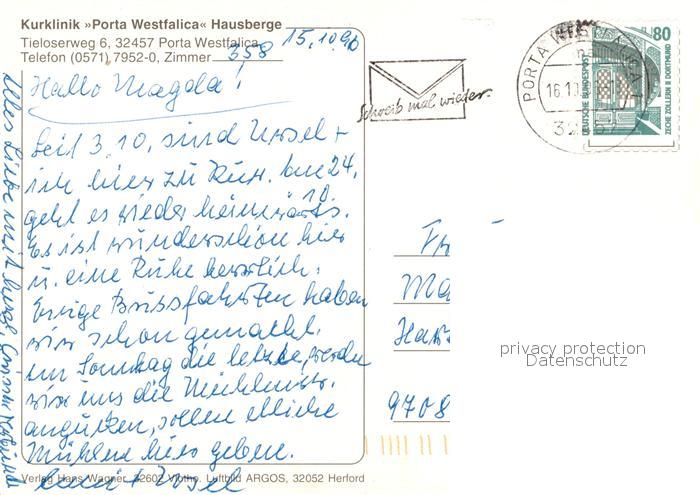 Kurklinik »Porta Westfalica« Hausberge
Tieloserweg 6, 32457 Porta Westfalica
Telefon (0571) 7952-0, Zimmer 358
15.10.96
Hallo Magda!
Seit 3.10. sind Ursel +
ich hier zur Kur. am 24.
10.
geht es wieder heimwärts.
Es ist wunderschön hier
u. eine Ruhe herrlich.
Einige Bussfahrten haben
wir schon gemacht.
am Sonntag die letzte, werde
wir uns die Mühlenstr.
angucken, sollen etliche
Mühlen hier geben.
+ Ursel
Alles Liebe
Verlag Hans Wagner, 32602 Vlotho, Luftbild ARGOS, 32052 Herford
Schreib mal wieder.
PORTA WESTFALICA 1
16.10.
80
DEUTSCHE BUNDESPOST
ZECHE ZOLLERN II DORTMUND
Fr
Ma
9708
privacy protection
Datenschutz